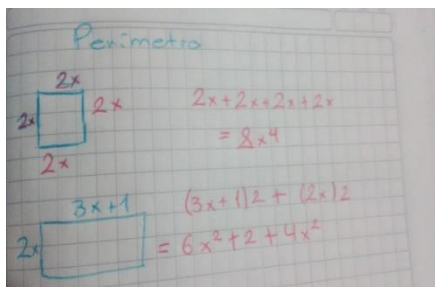 Perimetro
2x
2x 2x
2x
2x+2x+2x+2x
= 8x⁴
3x+1
2x
(3x+1)2 + (2x)2
= 6x²+2+4x²